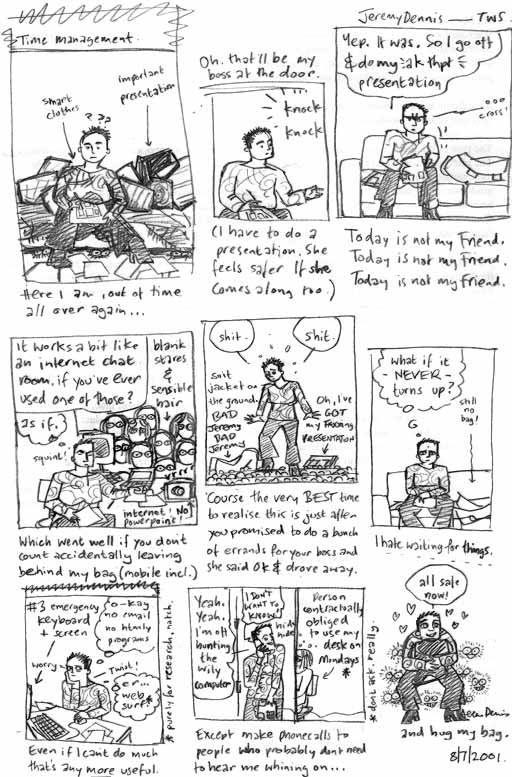 Time management.
JeremyDennis — TWS.
important
presentation
smart
clothes
? ? ?
Here I am, out of time
all over again...
Oh. that'll be my
boss at the door.
knock
knock
(I have to do a
presentation. She
feels safer if she
comes along too.)
Yep. It was. So I go off
& do my ak thpt
presentation
cross!
Today is not my friend.
Today is not my friend.
Today is not my friend.
It works a bit like
an internet chat
room, if you've ever
used one of those?
as if.
squint!
blank
stares
&
sensible
hair
internet! No
powerpoint!
Which went well if you don't
count accidentally leaving
behind my bag (mobile incl.)
shit.
shit.
Suit
jacket on
the ground.
BAD
Jeremy
BAD
Jeremy
Oh, I've
GOT
my
PRESENTATION
'Course the very BEST time
to realise this is just after
you promised to do a bunch
of errands for your boss and
she said OK & drove away.
what if it
- NEVER -
turns up?
still
no
bag!
I hate waiting for things.
#3 emergency
keyboard
+ screen
o-kay
no email
no html
programs
worry
Twist!
er...
web
surf*
* purely for research, natch.
Even if I can't do much
that's any more useful.
Yeah.
Yeah.
I'm off
hunting
the
wily
computer
I DON'T
WANT TO
KNOW!
hide
hide
person
contractually
obliged
to use my
desk on
Mondays
*
* dont ask. really.
Except make phonecalls to
people who probably dont need
to hear me whining on...
all safe
now!
and hug my bag.
8/7/2001.